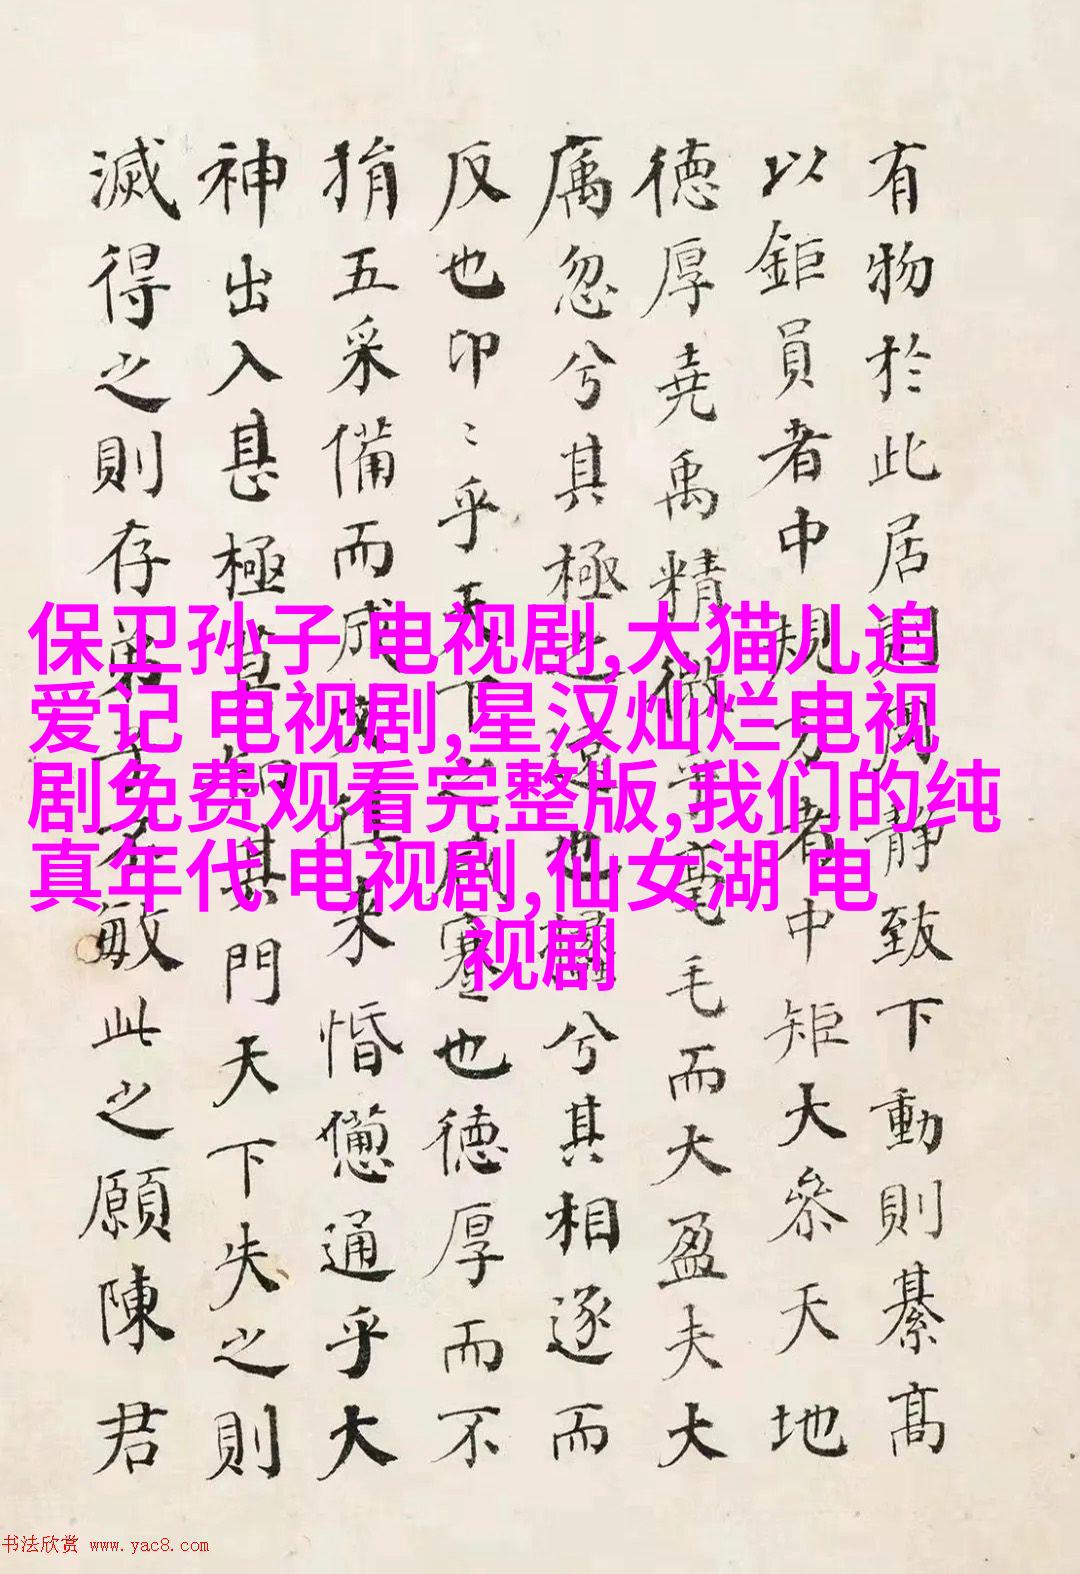 有物於此居静致下動則綦高
以鉅員者中規方者中矩大參天地
德厚堯禹精微乎毫毛而大盈夫大
厲忽兮其極之遠也攭兮其相逐而
反也卬〻乎天下之咸蹇也德厚而不
捐五采備而成文往来惛憊通乎大
神出入甚極莫知其門天下失之則
滅得之則存弟子不敏此之願陳君
保卫孙子 电视剧,大猫儿追
爱记 电视剧,星汉灿烂电视
剧免费观看完整版,我们的纯
真年代 电视剧,仙女湖 电
视剧
书法欣赏 www.yac8.com